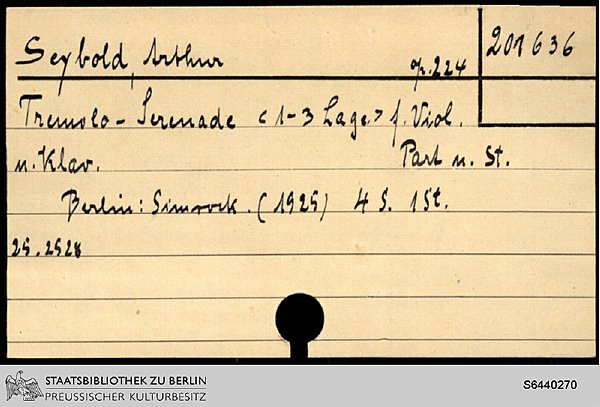 Seybold, Arthur op. 224
201636
Tremolo-Serenade <1-3 Lage> f. Viol.
u. Klav. Part u. St.
Berlin: Simrock. (1925) 4 S. 1 St.
25.2528
STAATSBIBLIOTHEK ZU BERLIN
PREUSSISCHER KULTURBESITZ
S6440270